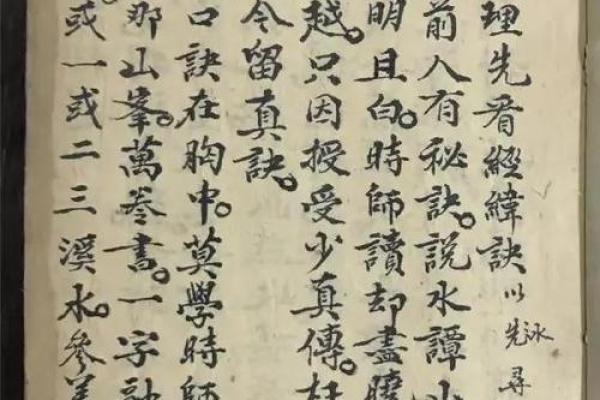 理先看經緯訣以先泳尋
前人有秘訣。說水譚山
明且白。時師讀却盡曉
越。只因授受少真傳。枉
令留真訣。
口訣在胸中。莫學時師
那山峯。萬卷書。一字訣
或一或二三溪水。參差